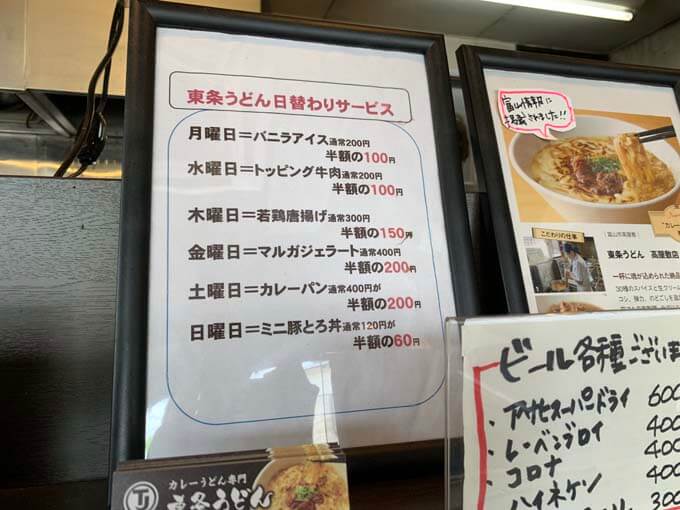 東条うどん日替わりサービス
月曜日＝バニラアイス通常200円
半額の100円
水曜日＝トッピング牛肉通常200円
半額の100円
木曜日＝若鶏唐揚げ通常300円
半額の150円
金曜日＝マルガジェラート通常400円
半額の200円
土曜日＝カレーパン通常400円が
半額の200円
日曜日＝ミニ豚とろ丼通常120円が
半額の60円
カレーうどん専門
東条うどん
富山情報に
掲載されました!!
こだわりの仕事
富山市高屋敷
東条うどん 高屋敷店
一杯に魂が込められた絶品
30種のスパイスと生クリーム
コシ、弾力、のどごしを
ビール各種ございま
・アサヒスーパードライ 600
・レーベンブロイ 400
・コロナ 400
ハイネケン 300